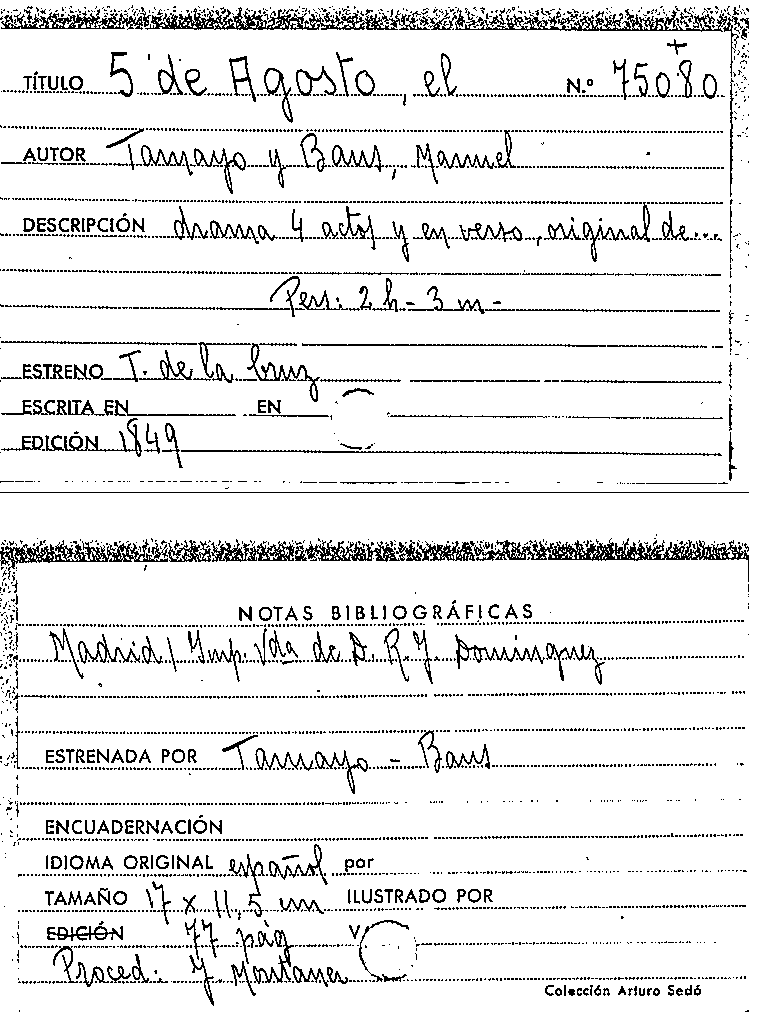 TÍTULO 5 de Agosto, el N.º 75080
AUTOR Tamayo y Baus, Manuel
DESCRIPCIÓN drama 4 actos y en verso, original de...
Pers: 2 h - 3 m -
ESTRENO T. de la Cruz
ESCRITA EN EN
EDICIÓN 1849
NOTAS BIBLIOGRÁFICAS
Madrid / Imp. Vda de D. R. J. Domínguez
ESTRENADA POR Tamayo - Baus
ENCUADERNACIÓN
IDIOMA ORIGINAL español por
TAMAÑO 17 x 11,5 cm ILUSTRADO POR
EDICIÓN 77 pág V
Proced: J. Montaner
Colección Arturo Sedó